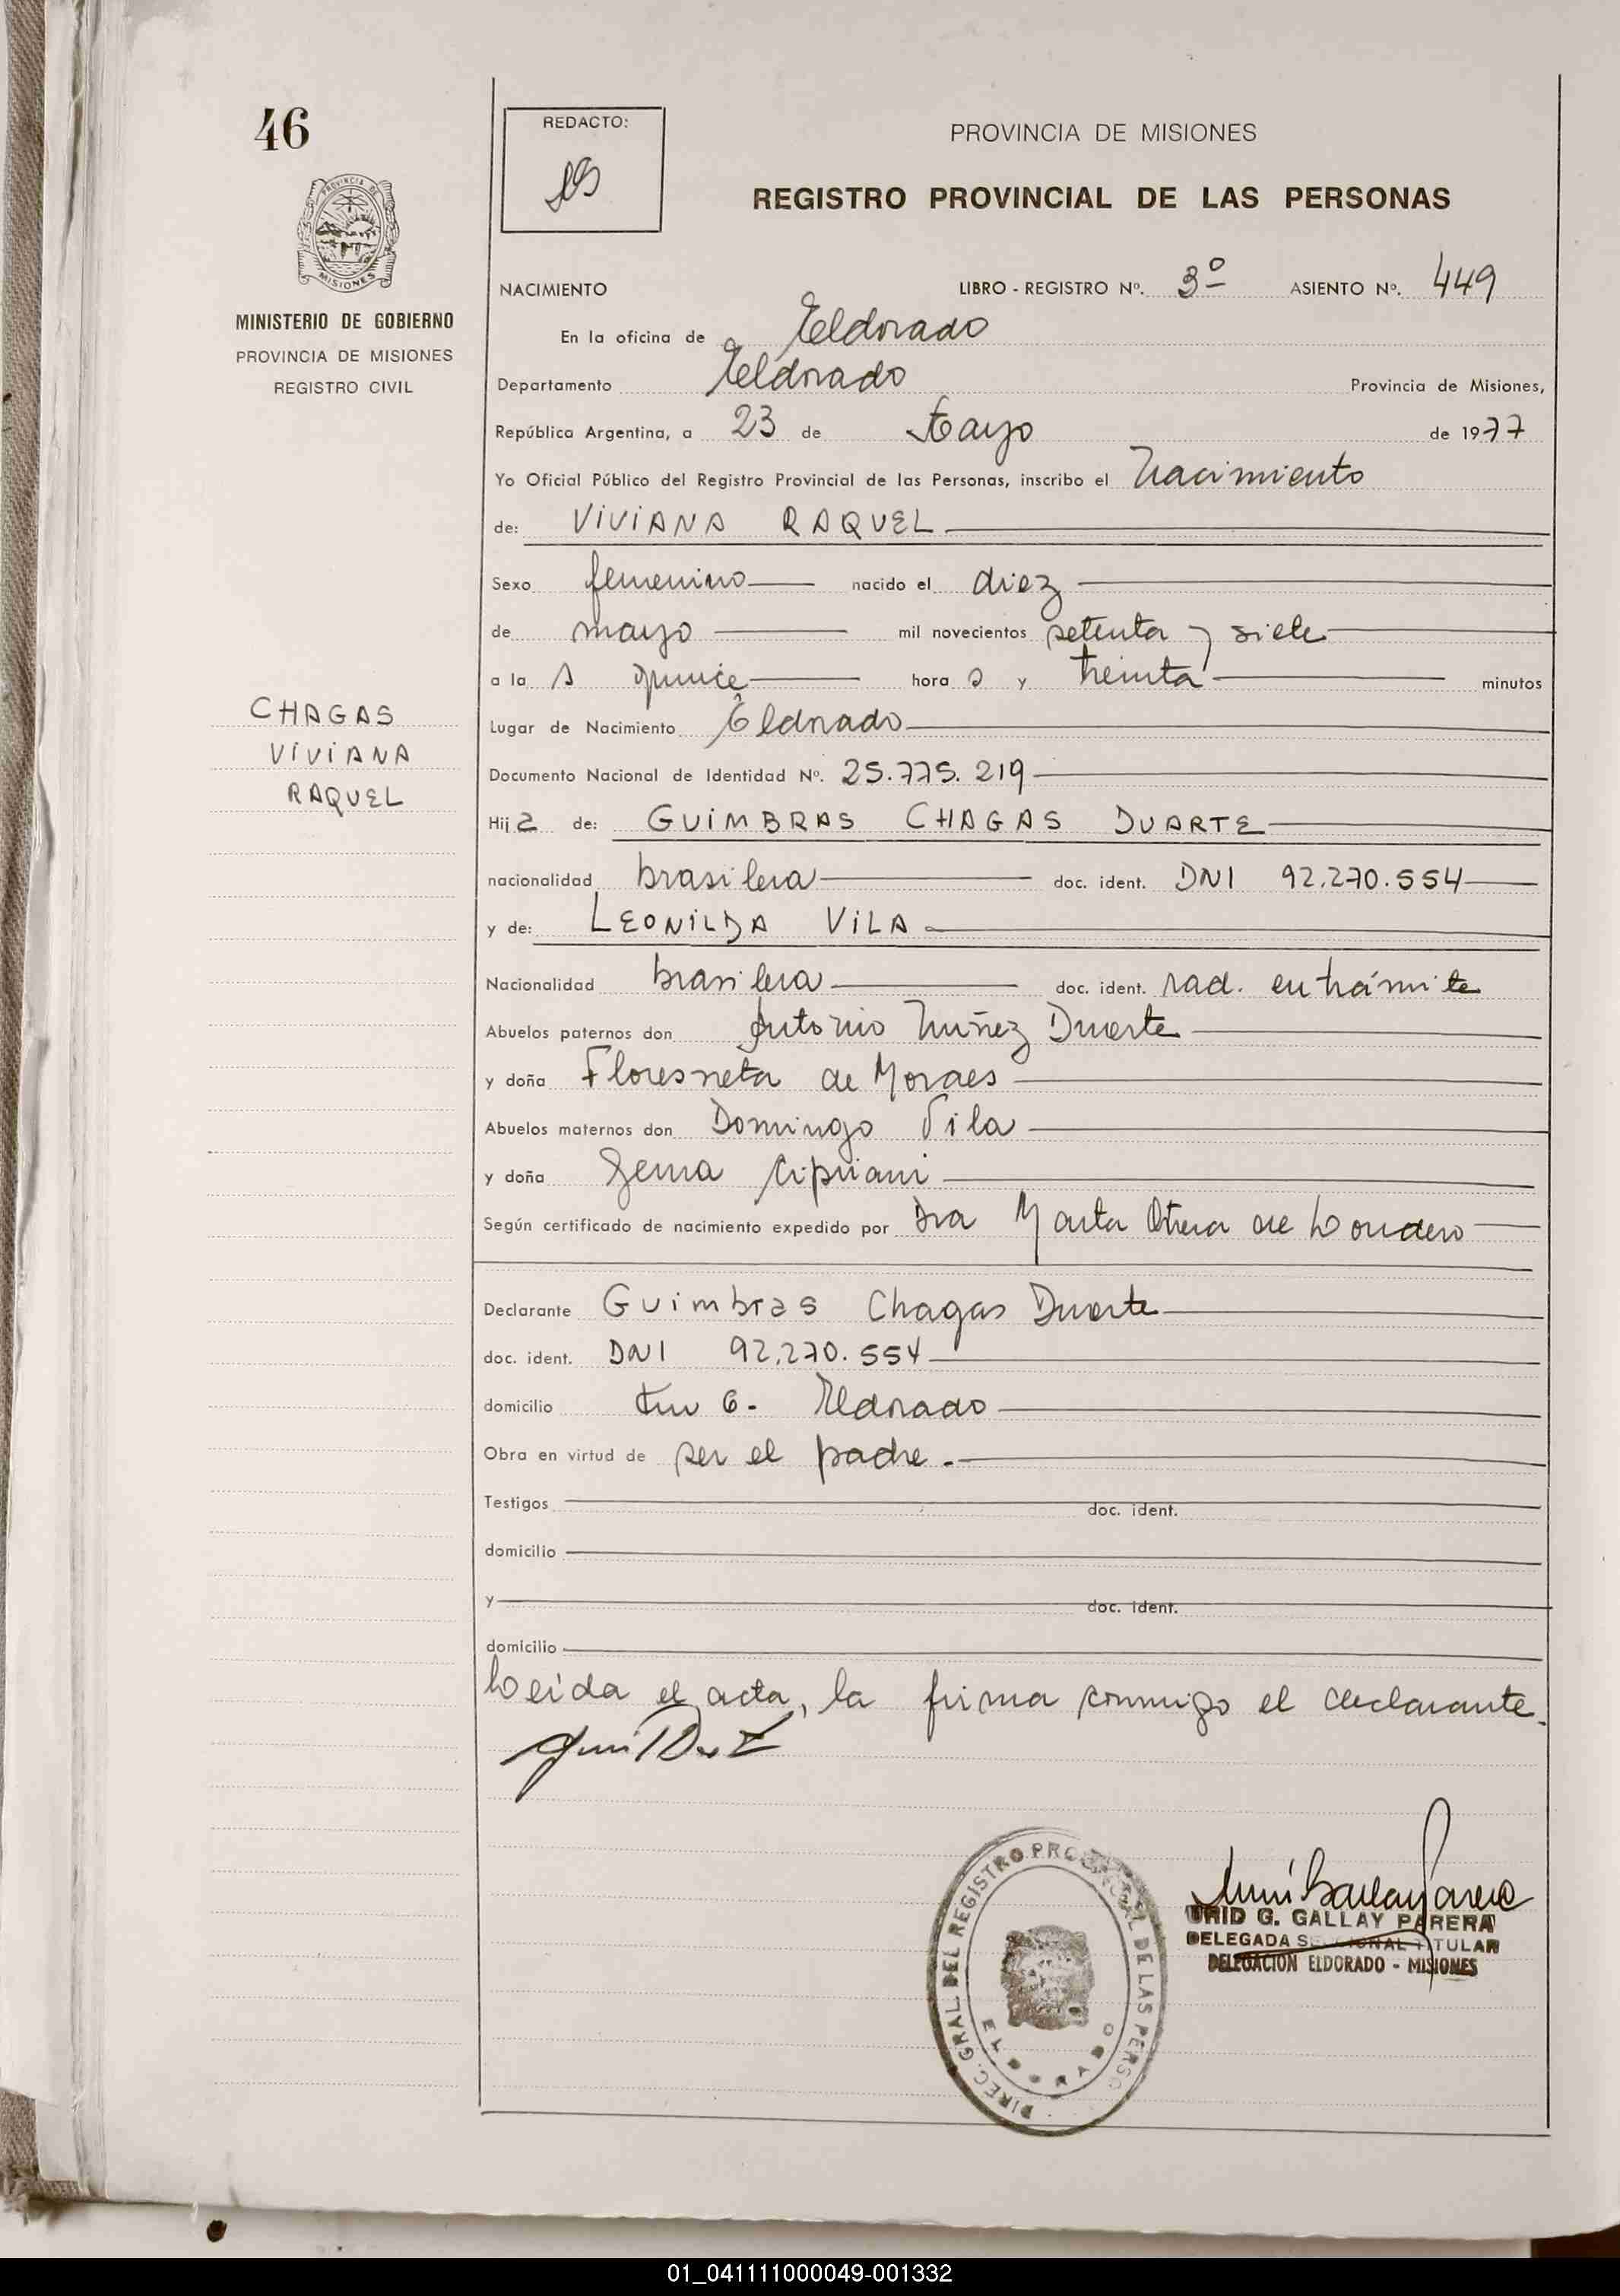 46
PROVINCIA DE
MISIONES
MINISTERIO DE GOBIERNO
PROVINCIA DE MISIONES
REGISTRO CIVIL
CHAGAS
VIVIANA
RAQUEL
REDACTO:
PROVINCIA DE MISIONES
REGISTRO PROVINCIAL DE LAS PERSONAS
NACIMIENTO LIBRO - REGISTRO Nº. 3º ASIENTO Nº. 449
En la oficina de Eldorado
Departamento Eldorado Provincia de Misiones,
República Argentina, a 23 de Mayo de 1977
Yo Oficial Público del Registro Provincial de las Personas, inscribo el Nacimiento
de: VIVIANA RAQUEL
Sexo femenino nacido el diez
de mayo mil novecientos setenta y siete
a la s quince hora s y treinta minutos
Lugar de Nacimiento Eldorado
Documento Nacional de Identidad Nº. 25.775.219
Hij a de: GUIMBRAS CHAGAS DUARTE
nacionalidad brasilera doc. ident. DNI 92.270.554
y de: LEONILDA VILA
Nacionalidad brasilera doc. ident. rad. en trámite
Abuelos paternos don Antonio Nuñez Duarte
y doña Floresneta de Moraes
Abuelos maternos don Domingo Vila
y doña Gema Cipriani
Según certificado de nacimiento expedido por Dra Marta Otera de Londero
Declarante Guimbras Chagas Duarte
doc. ident. DNI 92.270.554
domicilio km 6. Eldorado
Obra en virtud de ser el padre.
Testigos doc. ident.
domicilio
y doc. ident.
domicilio
Leida el acta, la firma conmigo el declarante.
DIREC. GRAL DEL REGISTRO PROVINCIAL DE LAS PERSO
ELDORADO
URID G. GALLAY PARERA
DELEGADA SECCIONAL TITULAR
DELEGACION ELDORADO - MISIONES
01_041111000049-001332